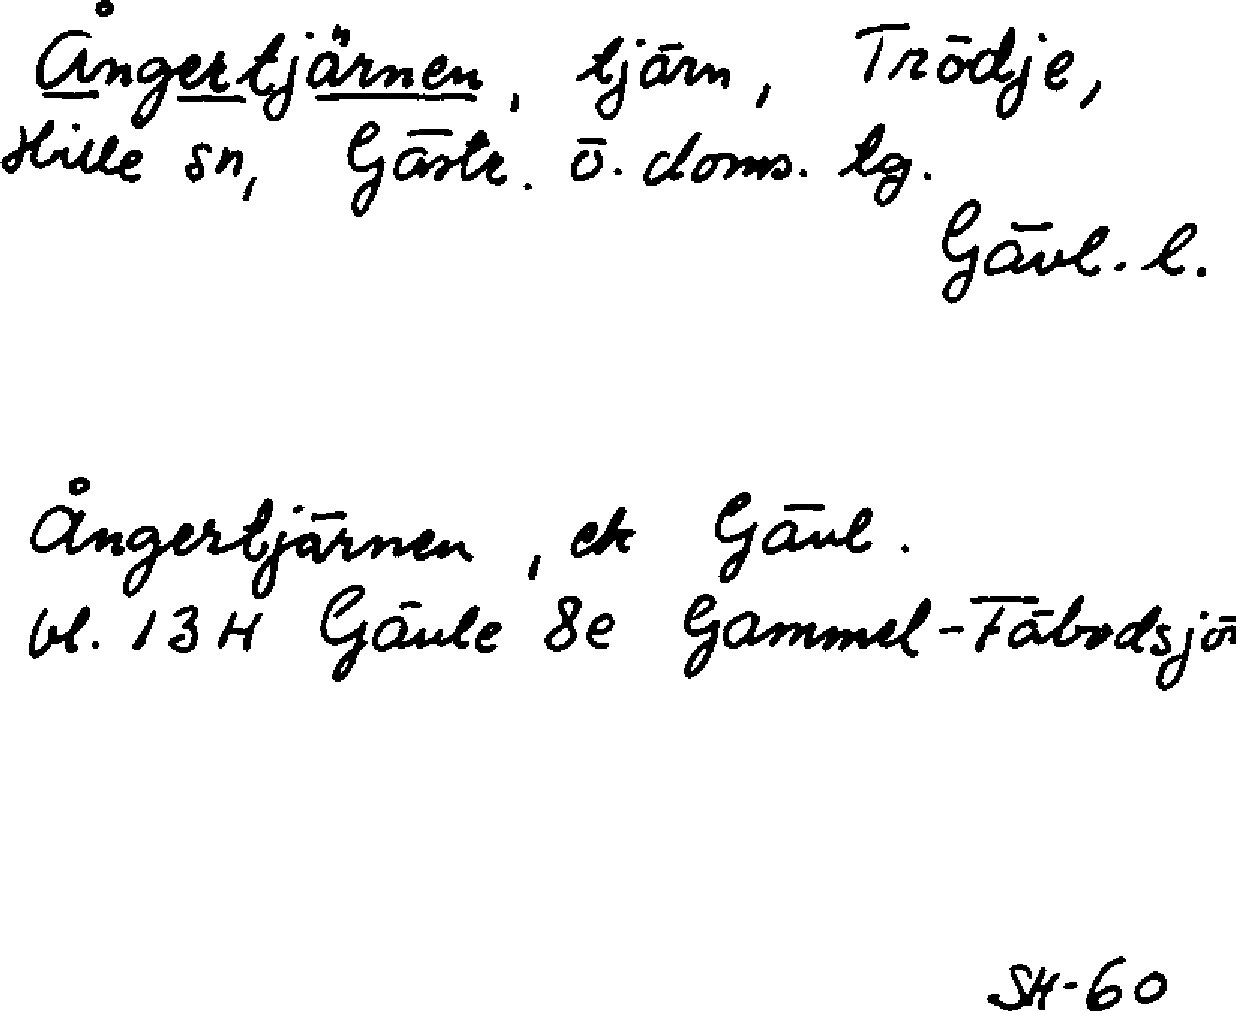 Ångertjärnen, tjärn, Trödje,
Hille sn, Gästr. ö. doms. tg.
Gävl. l.
Ångertjärnen, ek Gävl.
bl. 13H Gävle 8e Gammel-Fäbodsjön
SH-60